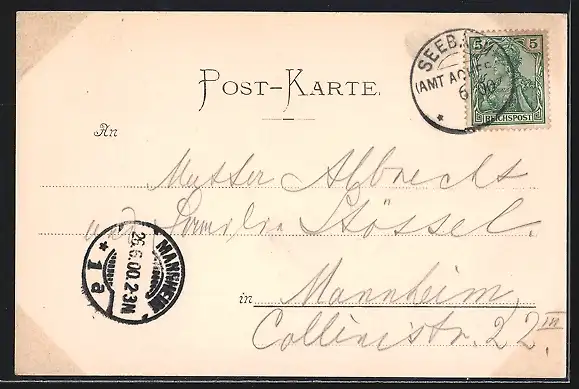 5 5
SEEB
(AMT AC
6 00
REICHSPOST
POST-KARTE.
An
Mutter Albrecht
und Familie Stössel.
MANNHEIM
26.6.00.2-3N
* 1 a
in Mannheim
Collinistr. 22 III.